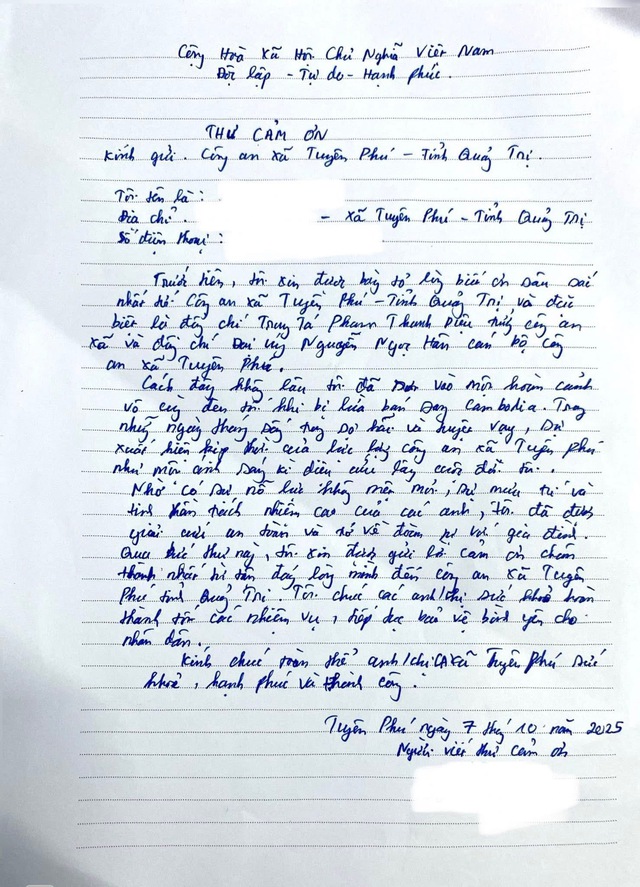 Cộng Hoà Xã Hội Chủ Nghĩa Việt Nam
Độc lập - Tự do - Hạnh phúc.
THƯ CẢM ƠN
Kính gửi. Công an xã Tuyên Phú - Tỉnh Quảng Trị.
Tôi tên là :
Địa chỉ . - xã Tuyên Phú - Tỉnh Quảng Trị
Số điện thoại :
Trước tiên, tôi xin được bày tỏ lòng biết ơn sâu sắc
nhất tới Công an xã Tuyên Phú - Tỉnh Quảng Trị và đặc
biệt là đồng chí Trung Tá Phạm Thanh Diệu trưởng công an
xã và đồng chí Đại úy Nguyễn Ngọc Hân cán bộ công
an xã Tuyên Phú.
Cách đây không lâu tôi đã rơi vào một hoàn cảnh
vô cùng đen tối khi bị lừa bán sang Cambodia. Trong
những ngày tháng sống trong sợ hãi và tuyệt vọng, sự
xuất hiện kịp thời của lực lượng công an xã Tuyên Phú
như một ánh sáng kì diệu cứu lấy cuộc đời tôi.
Nhờ có sự nỗ lực không mệt mỏi, sự mưu trí và
tinh thần trách nhiệm cao của các anh, tôi đã được
giải cứu an toàn và trở về đoàn tụ với gia đình.
Qua bức thư này, tôi xin được gửi lời cảm ơn chân
thành nhất từ tận đáy lòng mình đến công an xã Tuyên
Phú tỉnh Quảng Trị. Tôi chúc các anh/chị sức khoẻ hoàn
thành tốt các nhiệm vụ, tiếp tục bảo vệ bình yên cho
nhân dân.
Kính chúc toàn thể anh/chị CA xã Tuyên Phú sức
khoẻ, hạnh phúc và thành công.
Tuyên Phú ngày 7 tháng 10 năm 2025
Người viết thư cảm ơn